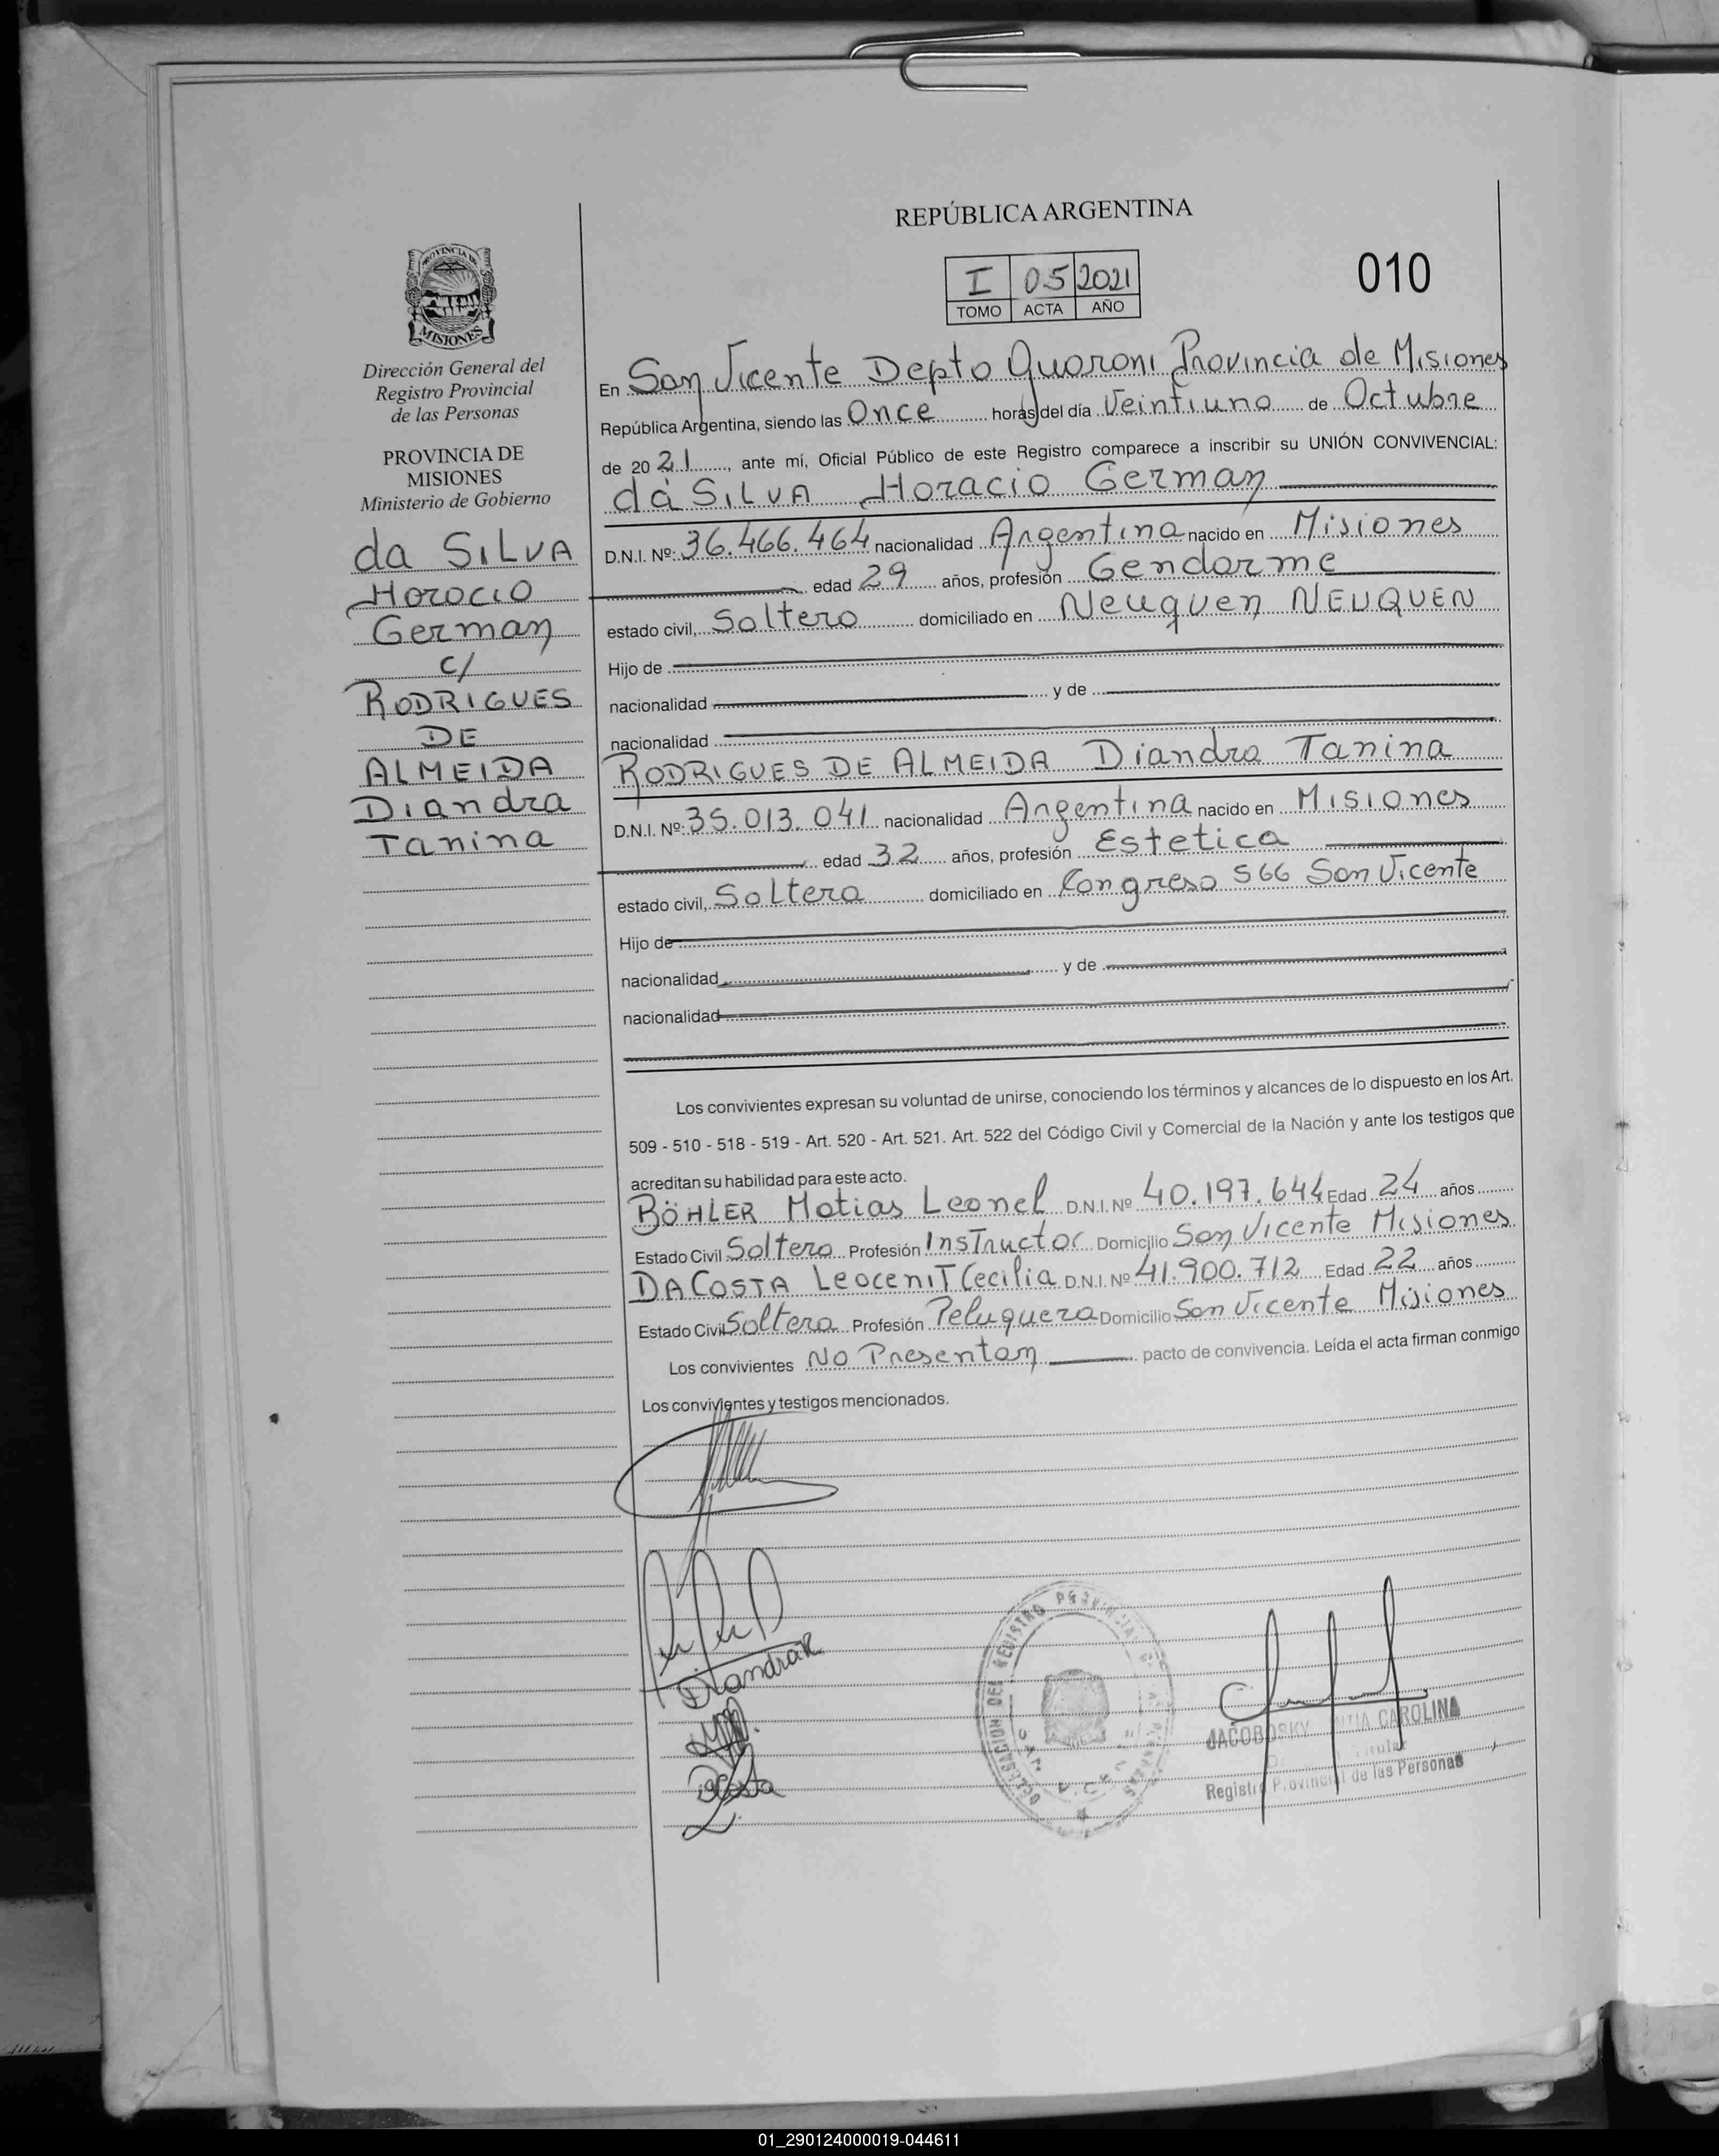 REPÚBLICA ARGENTINA
I 05 2021
TOMO ACTA AÑO
010
PROVINCIA DE
MISIONES
Dirección General del
Registro Provincial
de las Personas
PROVINCIA DE
MISIONES
Ministerio de Gobierno
da SILVA
Horocio
German
c/
RODRIGUES
DE
ALMEIDA
Diandra
Tanina
En San Vicente Depto Guaroni Provincia de Misiones
República Argentina, siendo las Once horas del día Veintiuno de Octubre
de 20 21, ante mí, Oficial Público de este Registro comparece a inscribir su UNIÓN CONVIVENCIAL:
da SILVA Horacio German
D.N.I. Nº: 36.466.464 nacionalidad Argentina nacido en Misiones
edad 29 años, profesión Gendarme
estado civil, Soltero domiciliado en Neuquen NEUQUEN
Hijo de
nacionalidad y de
nacionalidad
RODRIGUES DE ALMEIDA Diandra Tanina
D.N.I. Nº: 35.013.041 nacionalidad Argentina nacido en Misiones
edad 32 años, profesión Estetica
estado civil, Soltera domiciliado en Congreso 566 San Vicente
Hijo de
nacionalidad y de
nacionalidad
Los convivientes expresan su voluntad de unirse, conociendo los términos y alcances de lo dispuesto en los Art.
509 - 510 - 518 - 519 - Art. 520 - Art. 521. Art. 522 del Código Civil y Comercial de la Nación y ante los testigos que
acreditan su habilidad para este acto.
BÖHLER Matias Leonel D.N.I. Nº 40.197.644 Edad 24 años
Estado Civil Soltero Profesión Instructor Domicilio San Vicente Misiones
DACOSTA Leocenit Cecilia D.N.I. Nº 41.900.712 Edad 22 años
Estado Civil Soltera Profesión Peluquera Domicilio San Vicente Misiones
Los convivientes No Presentan pacto de convivencia. Leída el acta firman conmigo
Los convivientes y testigos mencionados.
Diandra R
DaCosta
DELEGACION DEL REGISTRO PROVINCIAL
JACOBOSKY CAROLINA
Registro Provincial de las Personas
01_290124000019-044611